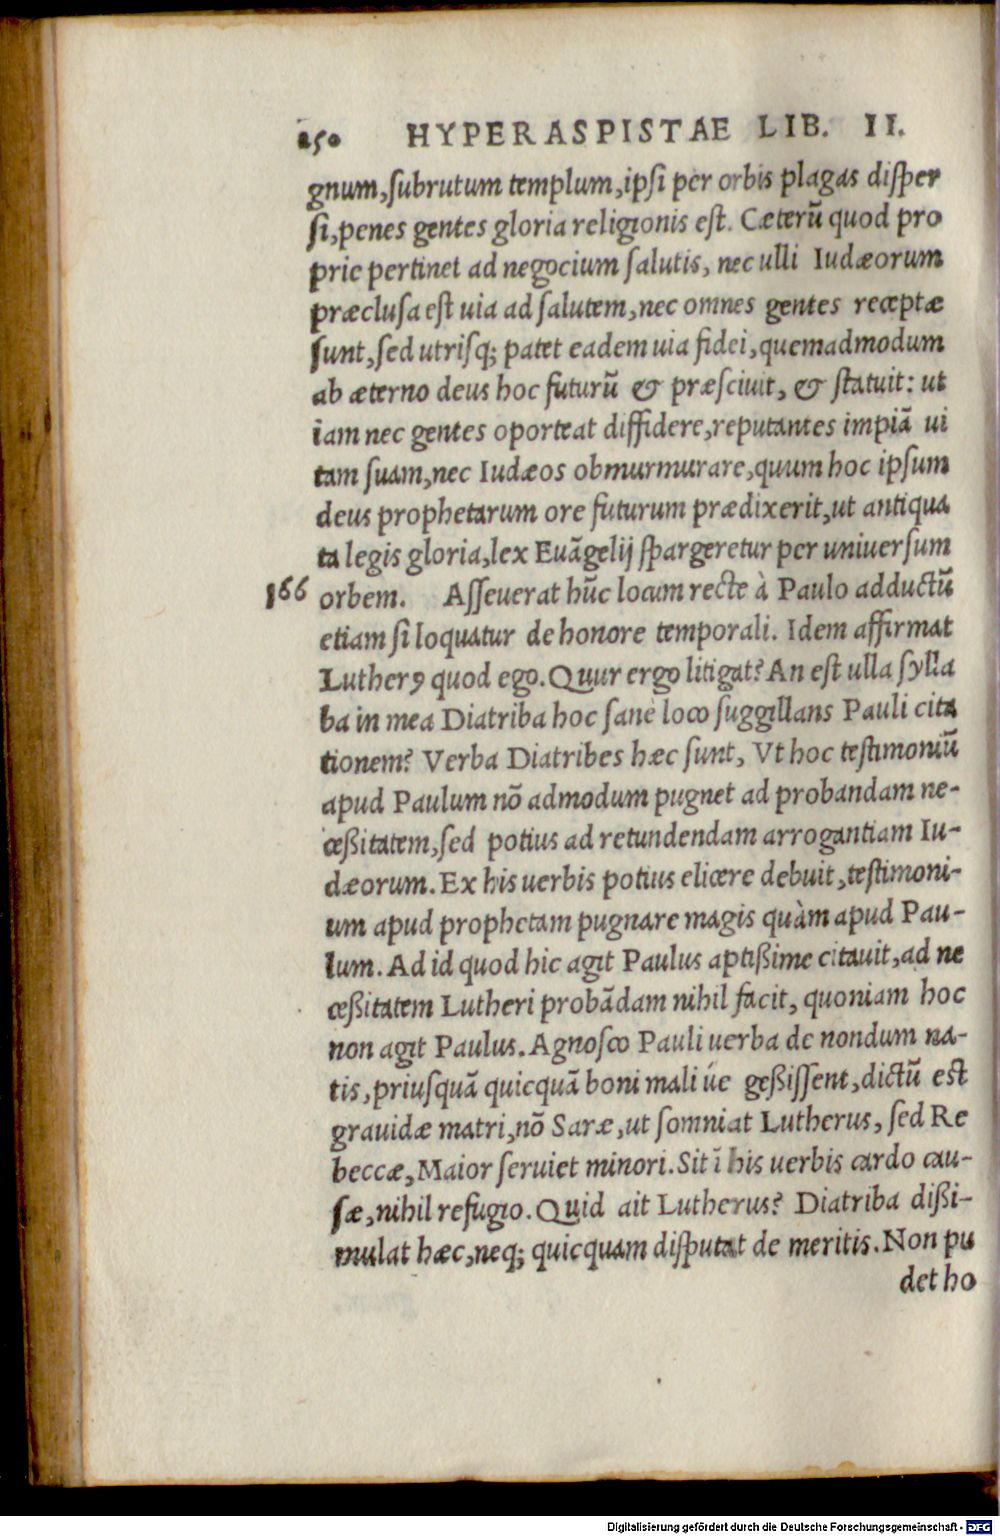 250 HYPERASPISTAE LIB. II.
gnum, ſubrutum templum, ipſi per orbis plagas diſper
ſi, penes gentes gloria religionis eſt. Cæterũ quod pro
prie pertinet ad negocium ſalutis, nec ulli Iudæorum
præcluſa eſt uia ad ſalutem, nec omnes gentes receptæ
ſunt, ſed utriſq; patet eadem uia fidei, quemadmodum
ab æterno deus hoc futurũ & præſciuit, & ſtatuit: ut
iam nec gentes oporteat diffidere, reputantes impiã ui
tam ſuam, nec Iudæos obmurmurare, quum hoc ipſum
deus prophetarum ore futurum prædixerit, ut antiqua
ta legis gloria, lex Euãgelij ſpargeretur per uniuerſum
166 orbem. Aſſeuerat hũc locum recte à Paulo adductũ
etiam ſi loquatur de honore temporali. Idem affirmat
Lutherꝯ quod ego. Quur ergo litigat? An eſt ulla ſylla
ba in mea Diatriba hoc ſanè loco ſuggillans Pauli cita
tionem? Verba Diatribes hæc ſunt, Vt hoc teſtimoniũ
apud Paulum nõ admodum pugnet ad probandam ne-
ceßitatem, ſed potius ad retundendam arrogantiam Iu-
dæorum. Ex his uerbis potius elicere debuit, teſtimoni-
um apud prophetam pugnare magis quàm apud Pau-
lum. Ad id quod hic agit Paulus aptißime citauit, ad ne
ceßitatem Lutheri probãdam nihil facit, quoniam hoc
non agit Paulus. Agnoſco Pauli uerba de nondum na-
tis, priuſquã quicquã boni mali úe geßiſſent, dictũ eſt
grauidæ matri, nõ Saræ, ut ſomniat Lutherus, ſed Re
beccæ, Maior ſeruiet minori. Sit ĩ his uerbis cardo cau-
ſæ, nihil refugio. Quid ait Lutherus? Diatriba dißi-
mulat hæc, neq; quicquam diſputat de meritis. Non pu
det ho
Digitalisierung gefördert durch die Deutsche Forschungsgemeinschaft - DFG